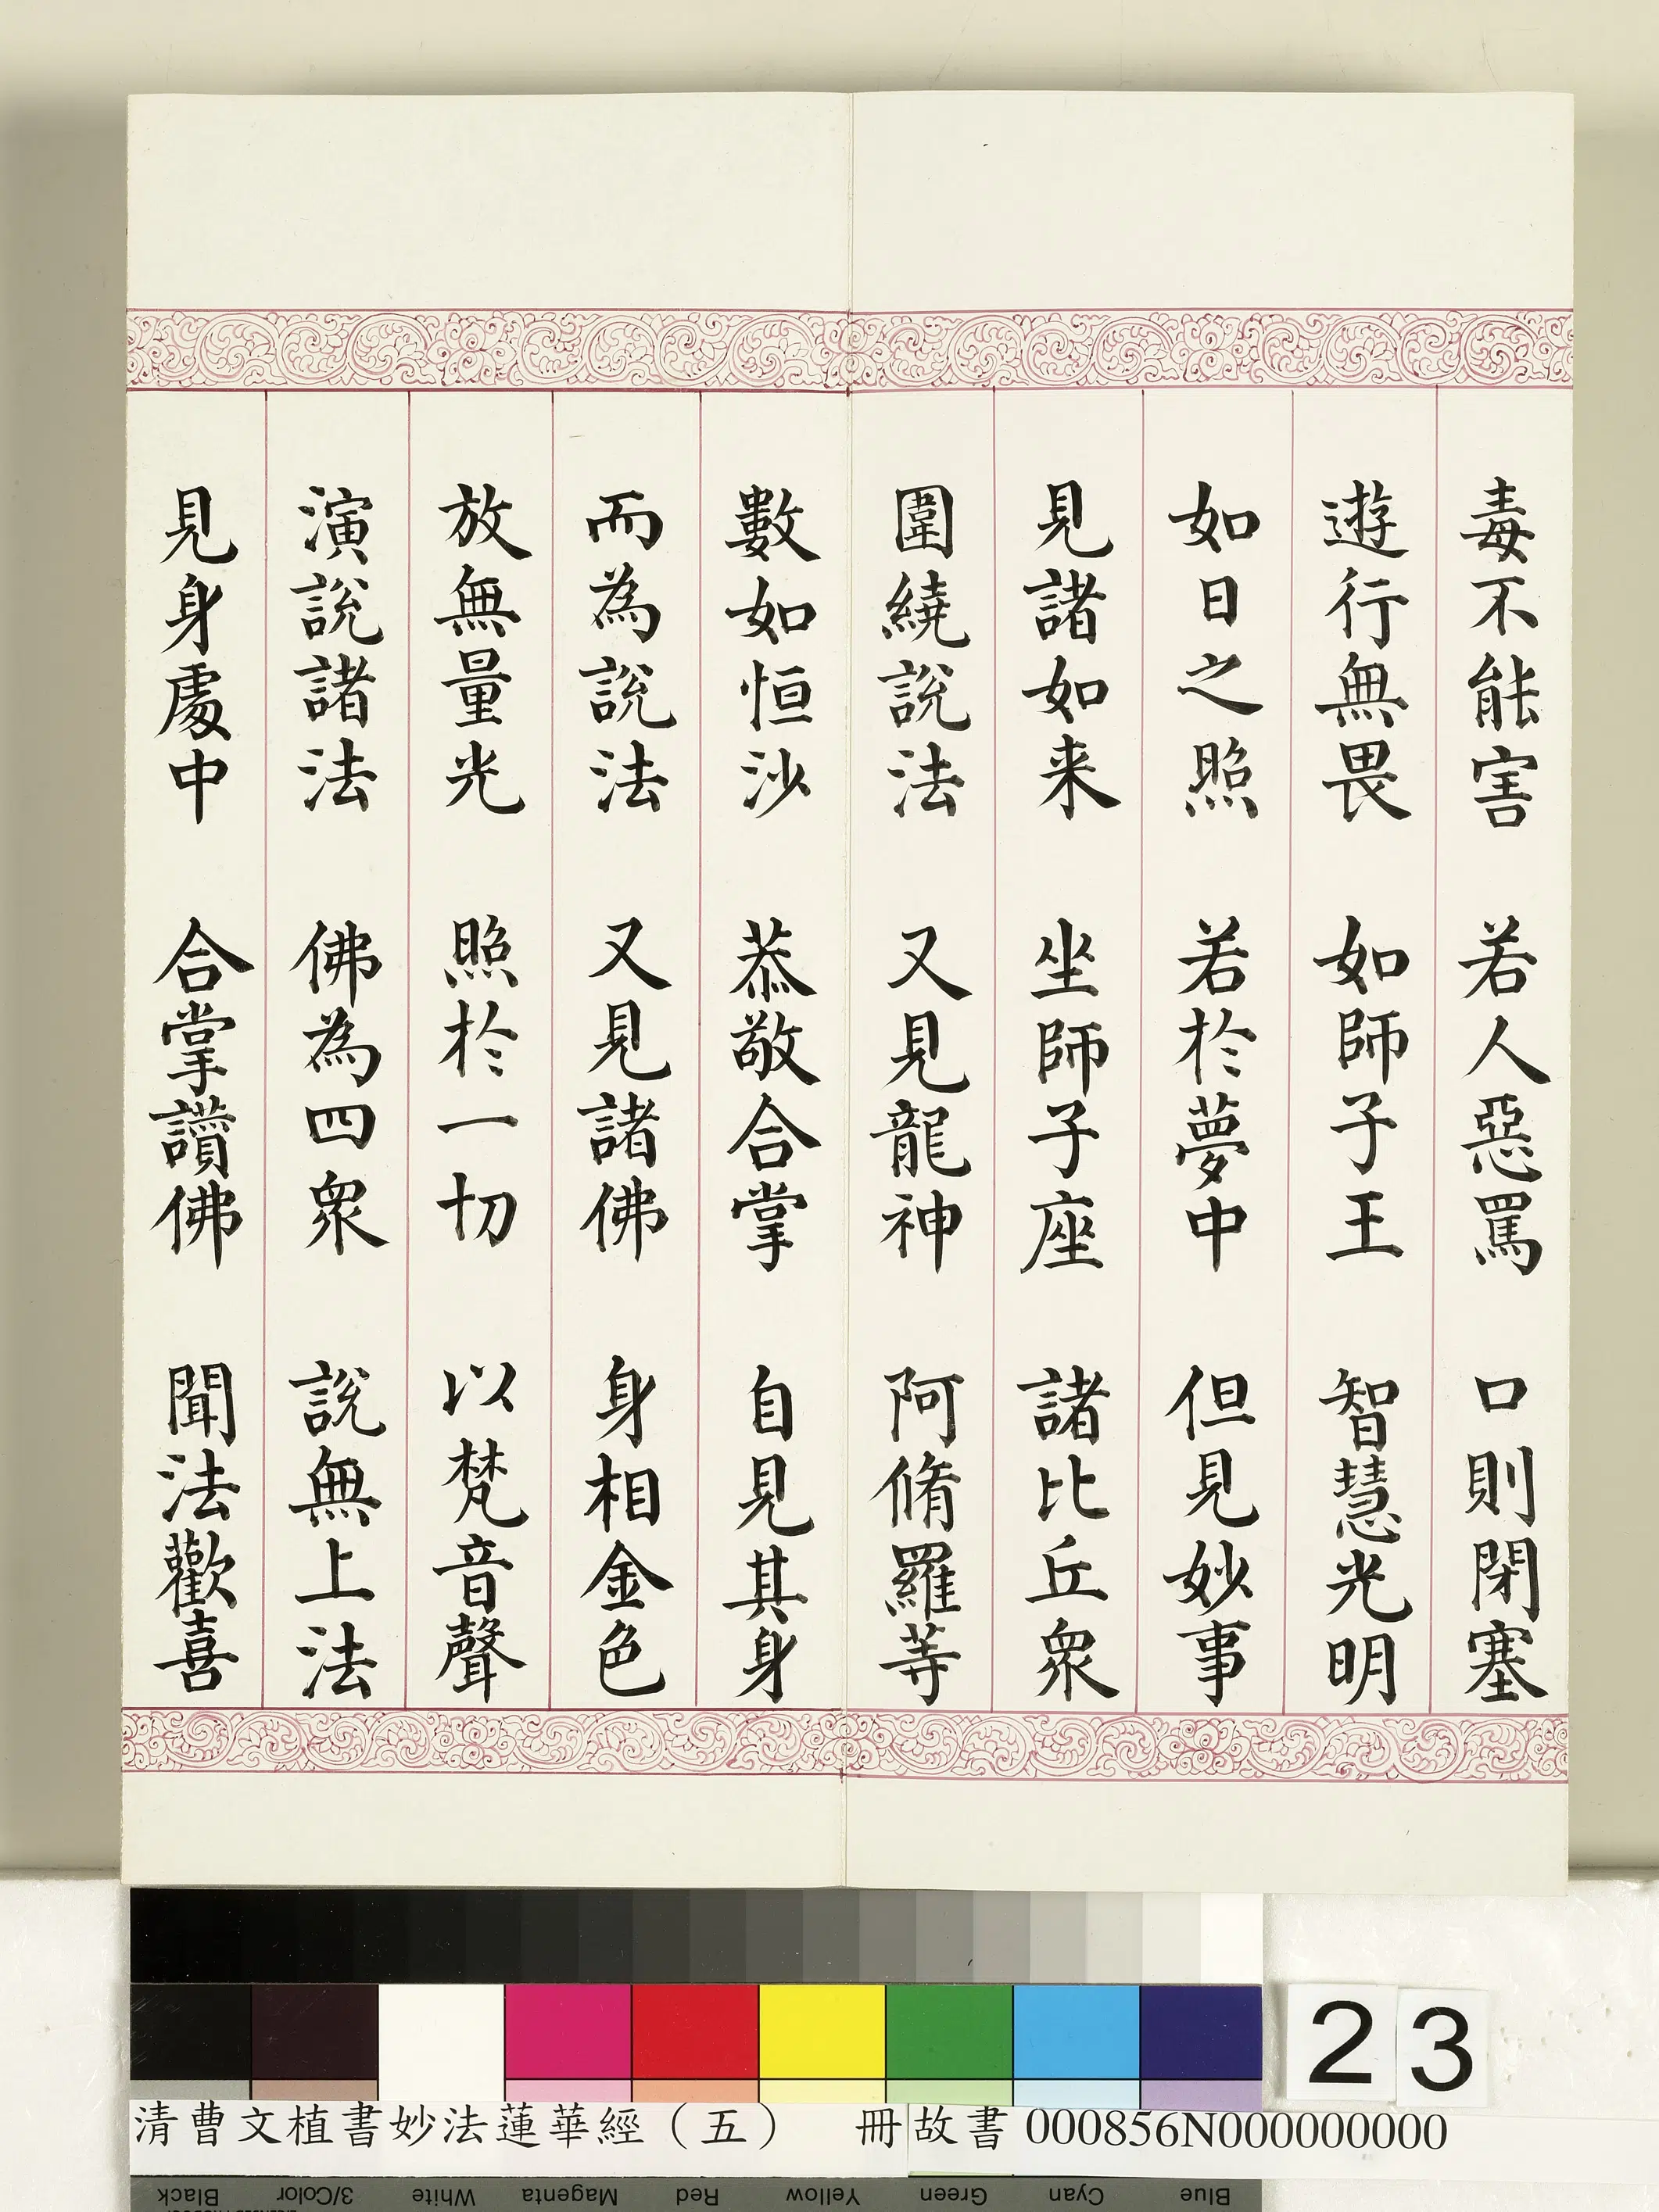 毒不能害　若人惡罵　口則閉塞
遊行無畏　如師子王　智慧光明
如日之照　若於夢中　但見妙事
見諸如来　坐師子座　諸比丘衆
圍繞說法　又見龍神　阿脩羅等
數如恒沙　恭敬合掌　自見其身
而為說法　又見諸佛　身相金色
放無量光　照於一切　以梵音聲
演說諸法　佛為四衆　說無上法
見身處中　合掌讚佛　聞法歡喜
23
清曹文植書妙法蓮華經（五）　冊故書 000856N000000000
Black 3/Color White Magenta Red Yellow Green Cyan Blue